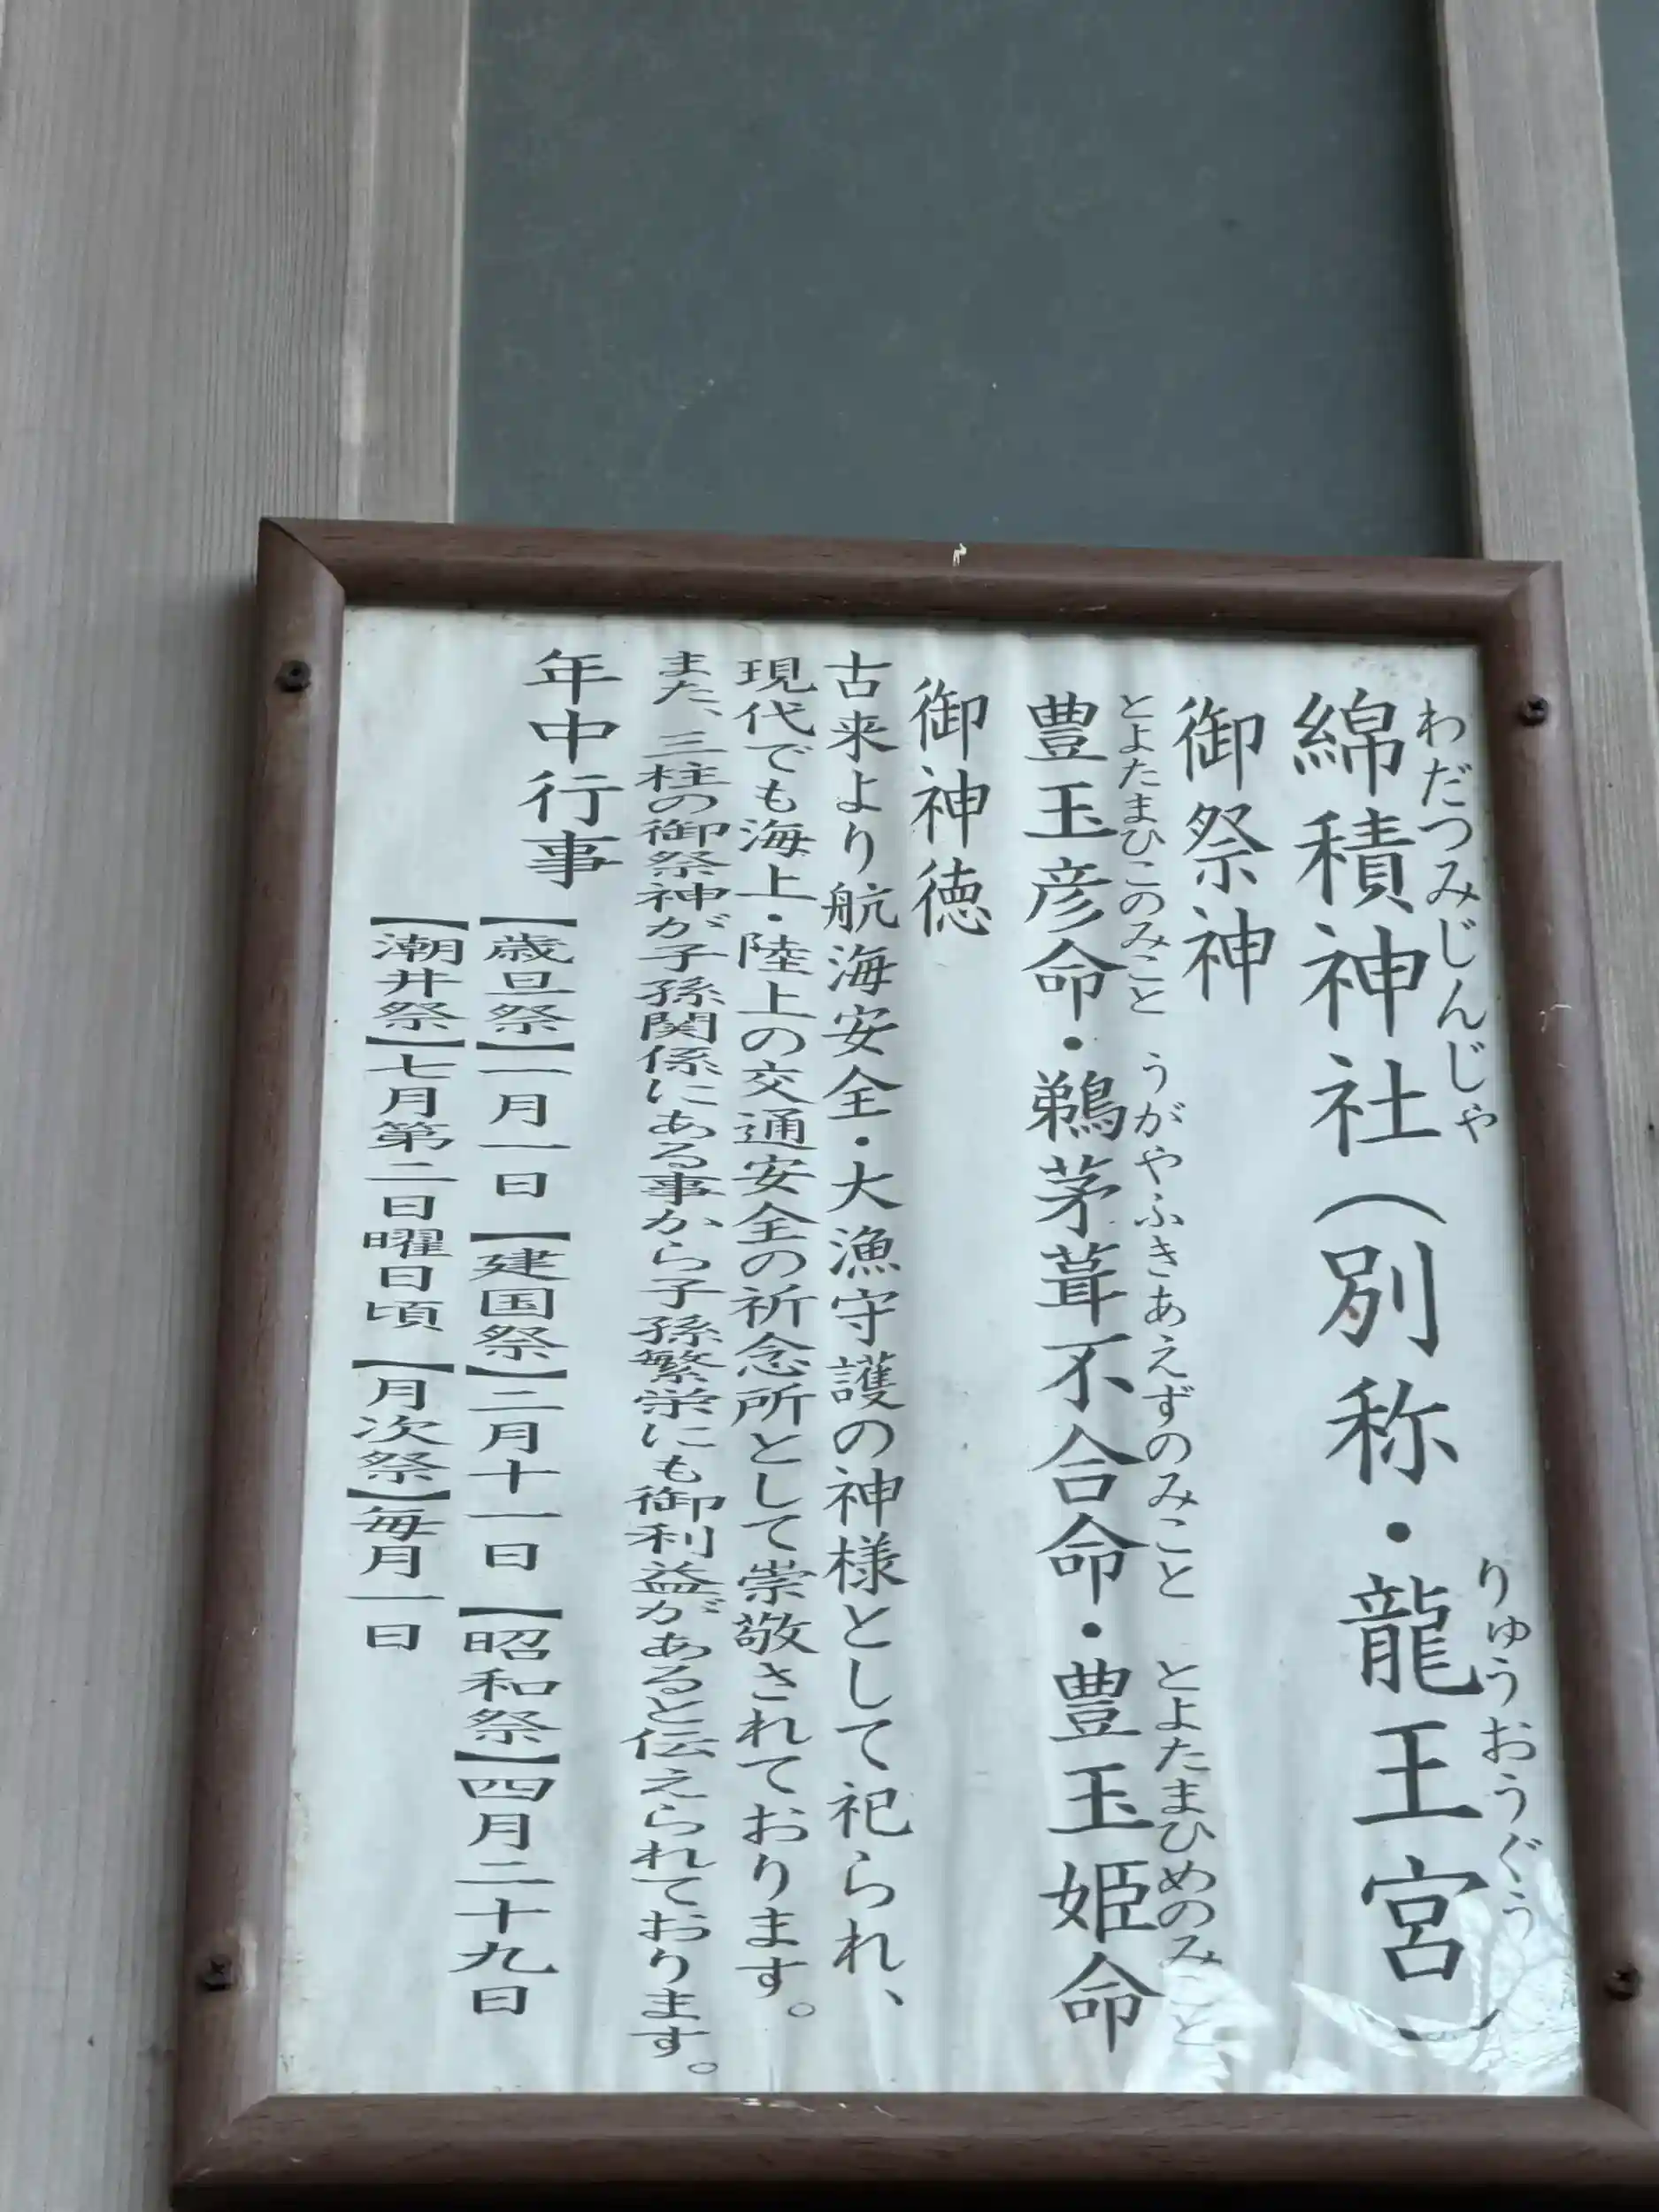 わだつみじんじゃ りゅうおうぐう
綿積神社(別称・龍王宮)
御祭神
とよたまひこのみこと うがやふきあえずのみこと とよたまひめのみこと
豊玉彦命・鵜茅葺不合命・豊玉姫命
御神徳
古来より航海安全・大漁守護の神様として祀られ、
現代でも海上・陸上の交通安全の祈念所として崇敬されております。
また、三柱の御祭神が子孫関係にある事から子孫繁栄にも御利益があると伝えられております。
年中行事
【歳旦祭】一月一日 【建国祭】二月十一日 【昭和祭】四月二十九日
【潮井祭】七月第二日曜日頃 【月次祭】毎月一日